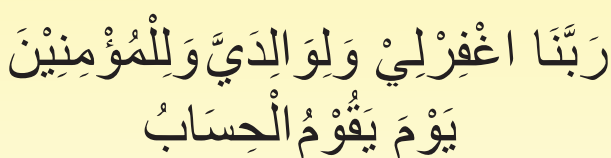 رَبَّنَا اغْفِرْلِيْ وَلِوَالِدَيَّ وَلِلْمُؤْمِنِيْنَ
يَوْمَ يَقُوْمُ الْحِسَابُ